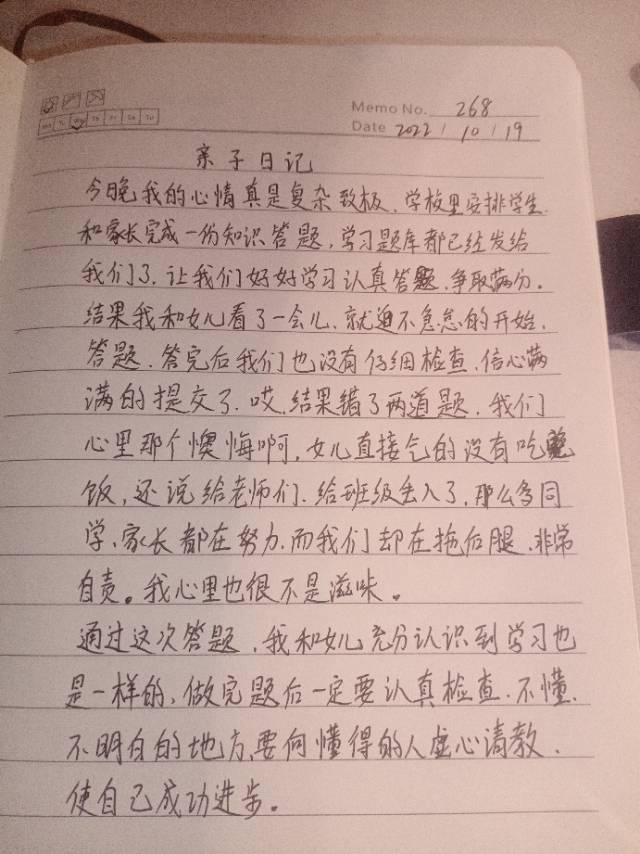 Mo Tu We Th Fr Sa Su
Memo No. 268
Date 2022 / 10 / 19
亲子日记
今晚我的心情真是复杂致极,学校里安排学生
和家长完成一份知识答题,学习题库都已经发给
我们了.让我们好好学习认真答题.争取满分.
结果我和女儿看了一会儿.就迫不急怠的开始.
答题.答完后我们也没有仔细检查.信心满
满的提交了.哎.结果错了两道题.我们
心里那个懊悔啊,女儿直接气的没有吃晚
饭,还说给老师们.给班级丢人了,那么多同
学.家长都在努力.而我们却在拖后腿.非常
自责。我心里也很不是滋味。
通过这次答题,我和女儿充分认识到学习也
是一样的,做完题后一定要认真检查.不懂.
不明白的地方,要向懂得的人虚心请教.
使自己成功进步。